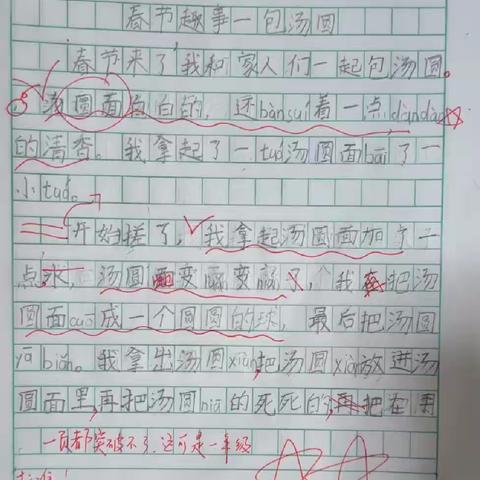 春节趣事一包汤圆
春节来了我和家人们一起包汤圆。
汤圆面白白的，还bànsuí着一点dàndàn
的清香。我拿起了一tuó汤圆面bāi了一
小tuó。
开始搓了，我拿起汤圆面加了一
点水，汤圆面变扁变扁了，我把汤
圆面cuō成一个圆圆的球，最后把汤圆
yā biǎn。我拿出汤圆xiàn，把汤圆xiàn放进汤
圆面里，再把汤圆niē的死死的，再把在男
一页都突破不了，这可是一年级